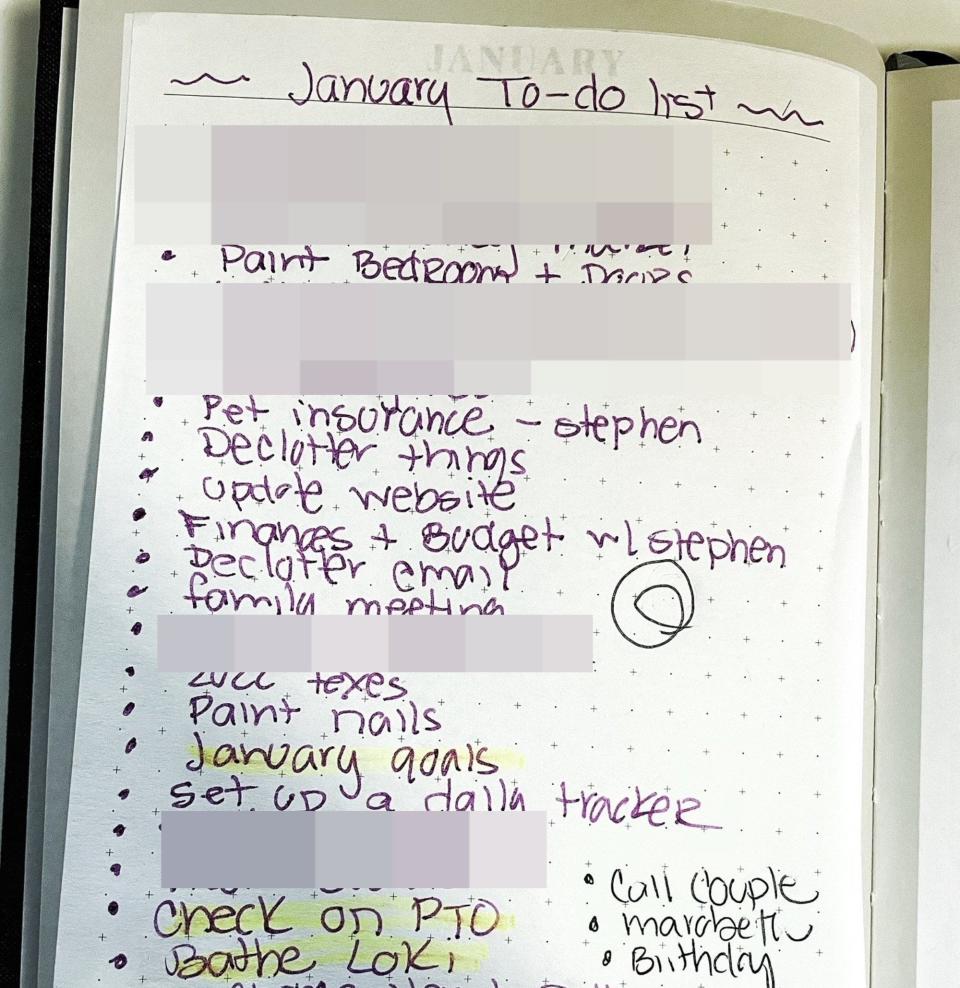 JANUARY
January To-do list
Paint Bedroom + Doors
Pet insurance - stephen
Declutter things
update website
Finances + Budget w/ stephen
Declutter email
family meeting
taxes
Paint nails
January goals
set up a daily tracker
Check on PTO
Bathe Loki
Call Couple
Birthday